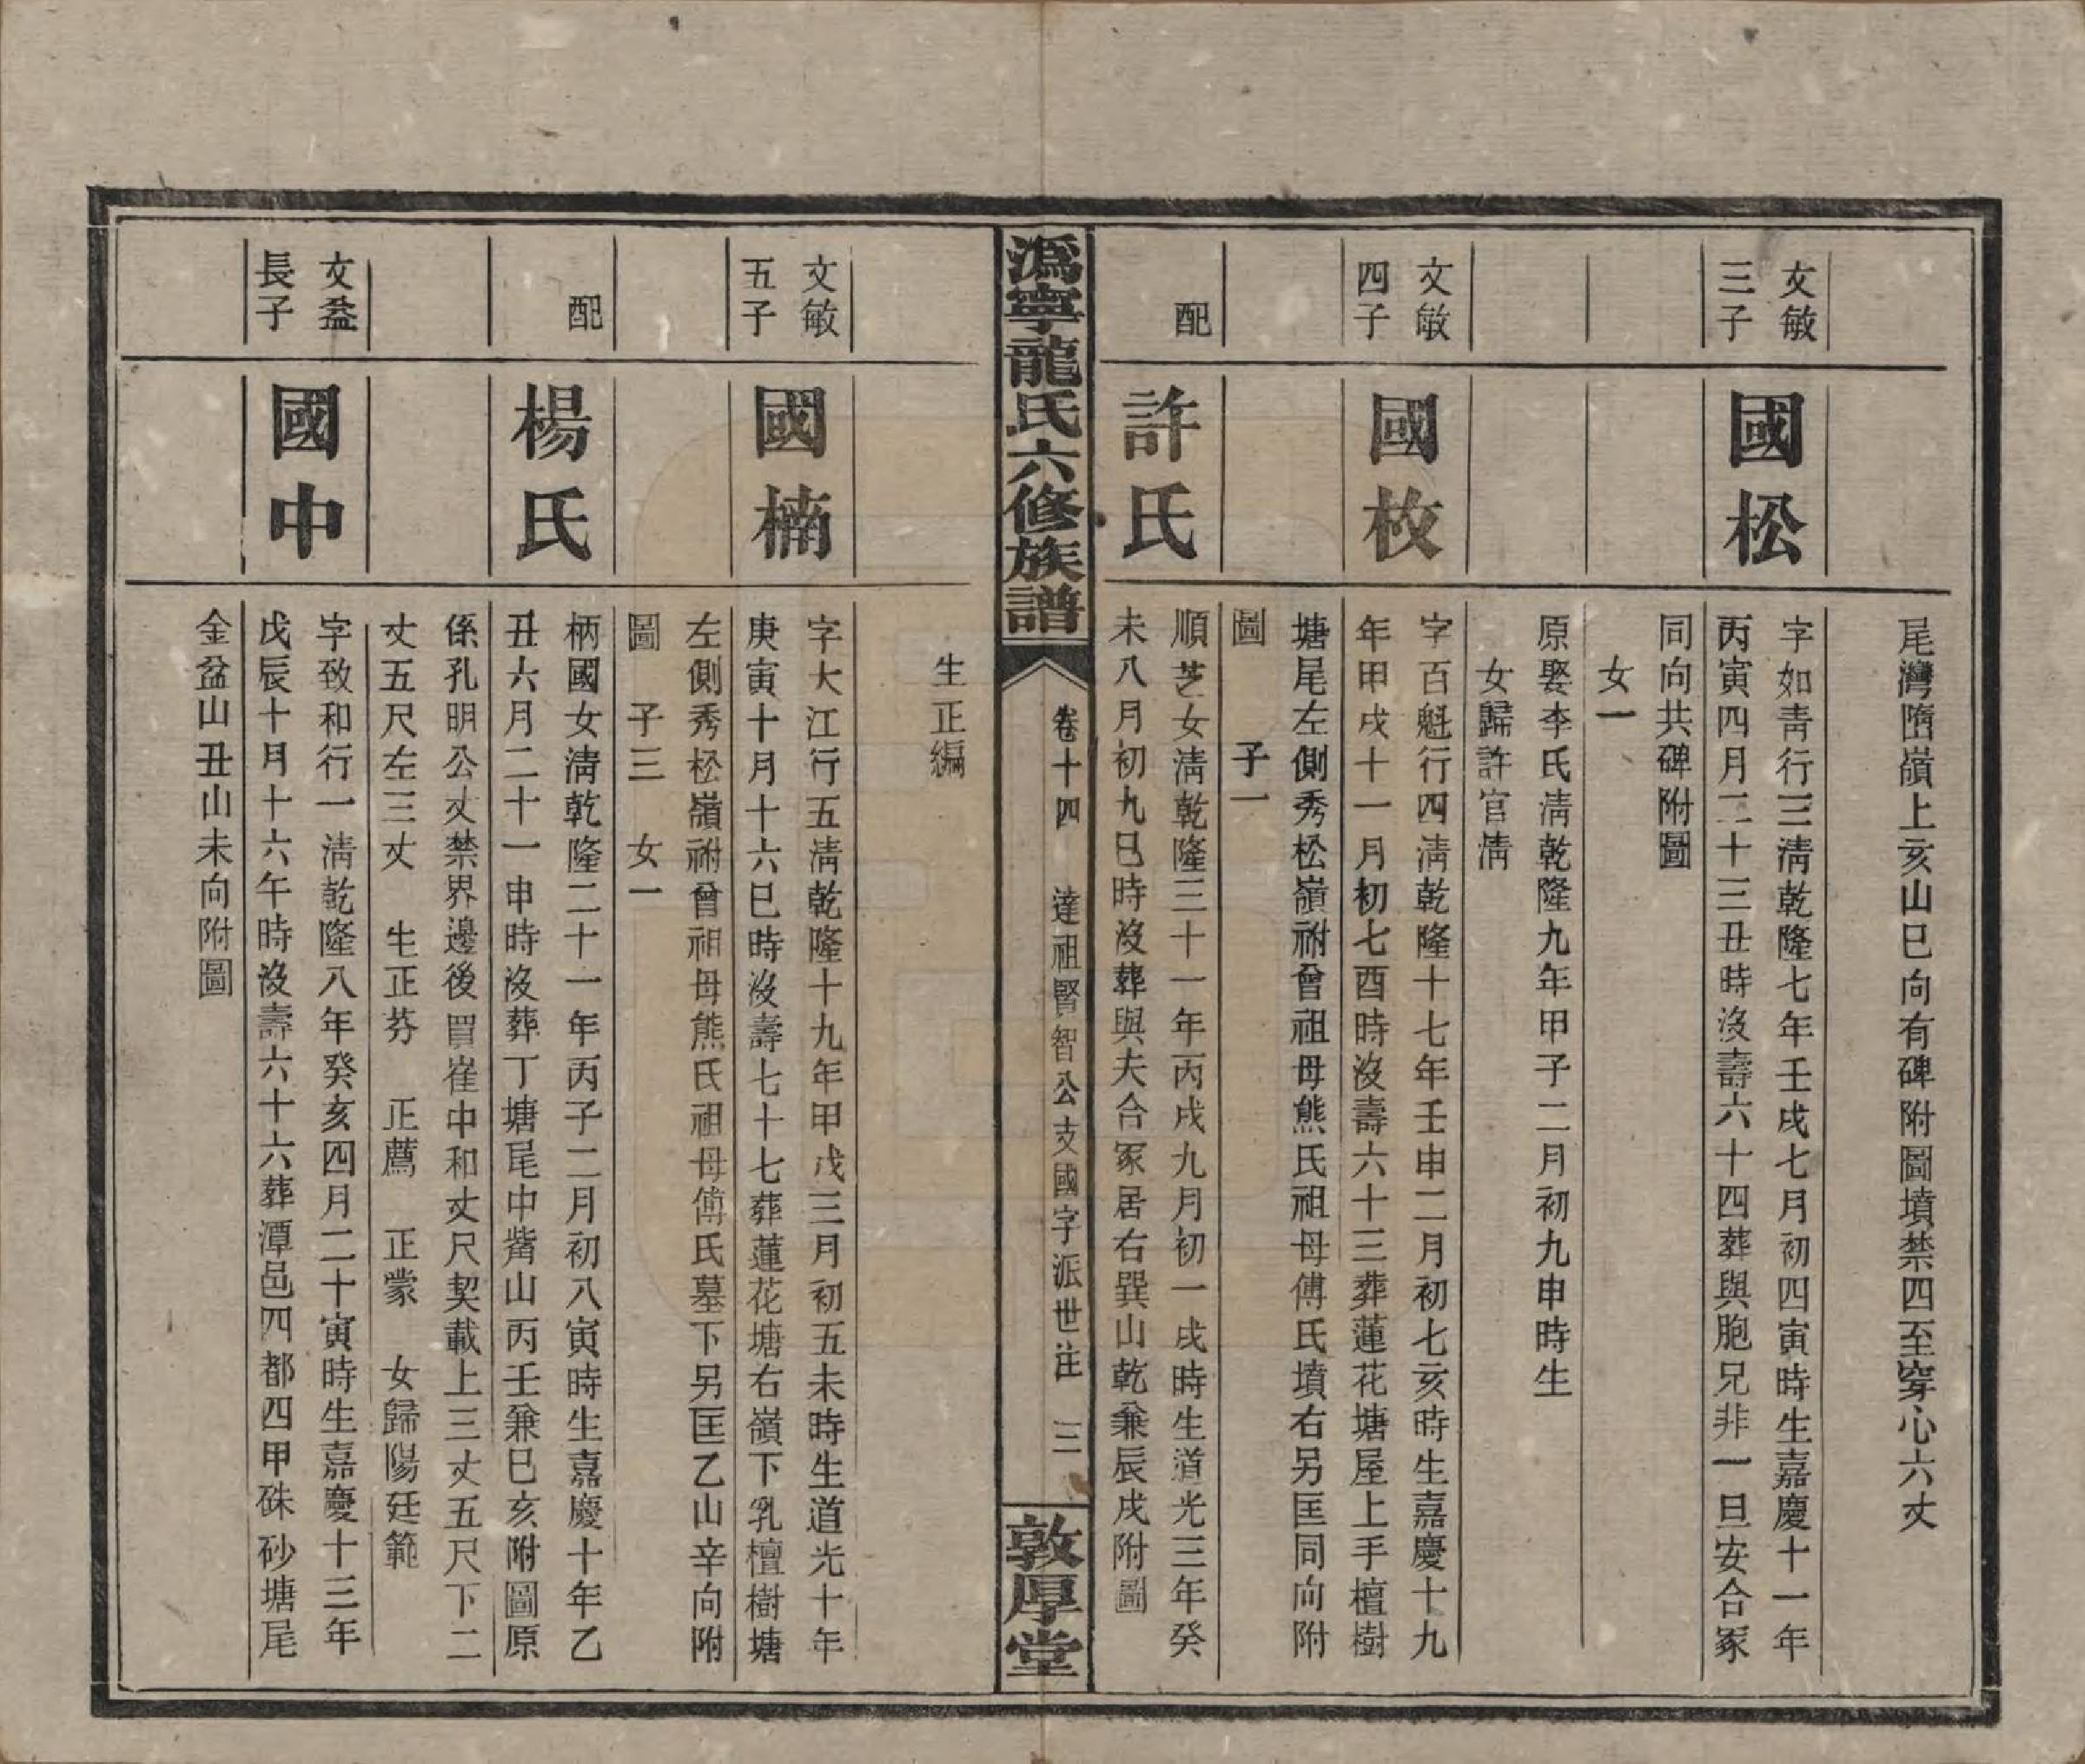 尾灣隋嶺上亥山巳向有碑附圖墳禁四至穿心六丈
文敏
三子
國松
字如青行三淸乾隆七年壬戌七月初四寅時生嘉慶十一年
丙寅四月二十三丑時沒壽六十四葬與胞兄非一旦安合冢
同向共碑附圖
女一
原娶李氏淸乾隆九年甲子二月初九申時生
女歸許官淸
文敏
四子
國枚
字百魁行四淸乾隆十七年壬申二月初七亥時生嘉慶十九
年甲戌十一月初七酉時沒壽六十三葬蓮花塘屋上手檀樹
塘尾左側秀松嶺祔曾祖母熊氏祖母傅氏墳右另匡同向附
圖 子一
配
許氏
順芝女淸乾隆三十一年丙戌九月初一戌時生道光三年癸
未八月初九巳時沒葬與夫合冢居右巽山乾兼辰戌附圖
溈寧龍氏六修族譜
卷十四 達祖賢智公支國字派世注 三
敦厚堂
生正編
文敏
五子
國楠
字大江行五淸乾隆十九年甲戌三月初五未時生道光十年
庚寅十月十六巳時沒壽七十七葬蓮花塘右嶺下乳檀樹塘
左側秀松嶺祔曾祖母熊氏祖母傅氏墓下另匡乙山辛向附
圖 子三 女一
配
楊氏
柄國女淸乾隆二十一年丙子二月初八寅時生嘉慶十年乙
丑六月二十一申時沒葬丁塘尾中觜山丙壬兼巳亥附圖原
係孔明公丈禁界邊後買崔中和丈尺契載上三丈五尺下二
丈五尺左三丈 生正芬 正薦 正蒙 女歸陽廷範
文益
長子
國中
字致和行一淸乾隆八年癸亥四月二十寅時生嘉慶十三年
戊辰十月十六午時沒壽六十六葬潭邑四都四甲硃砂塘尾
金盆山丑山未向附圖